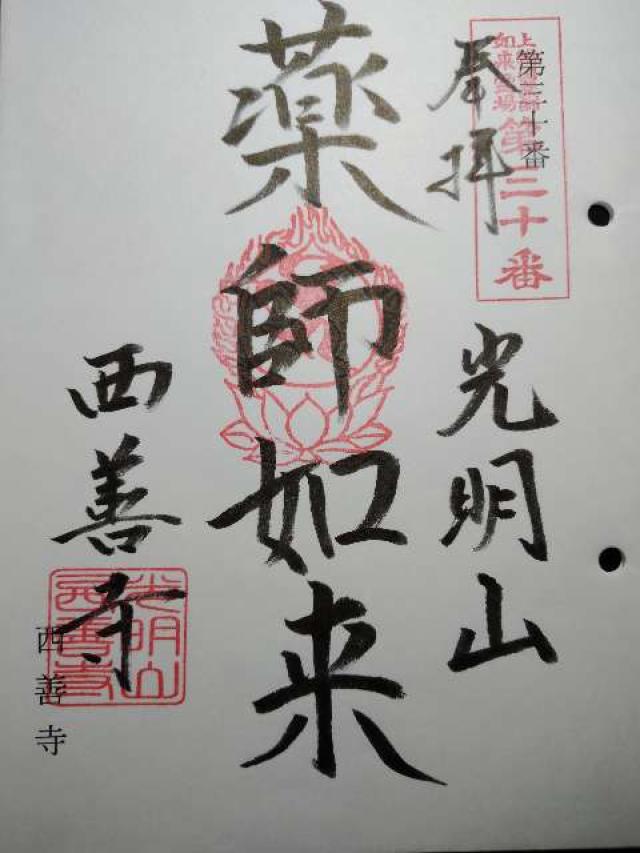 如来霊場
第三十番
第三十番
奉拝
光明山
薬師如来
西善寺
光明山
西善寺
西善寺